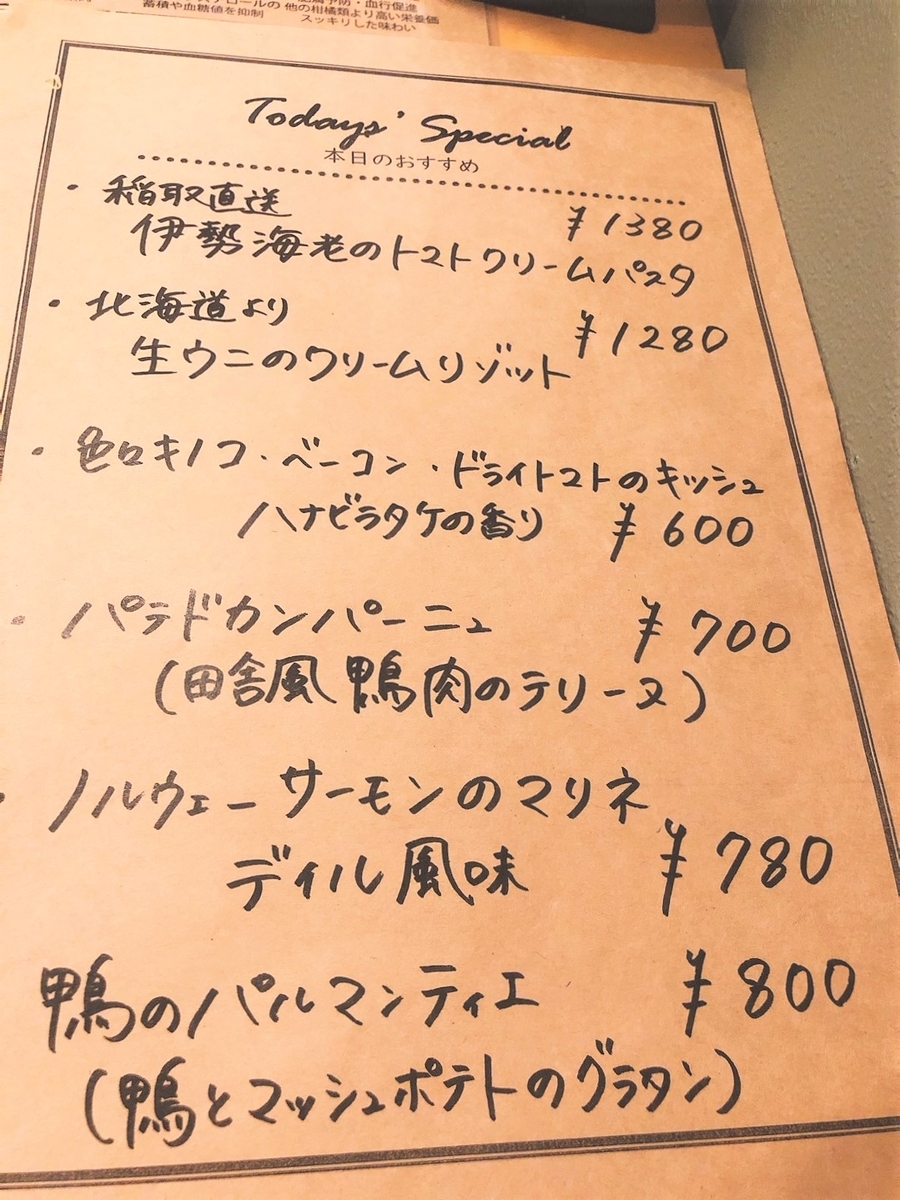 蓄積や血糖値を抑制
他の柑橘類より高い栄養価
スッキリした味わい
Todays' Special
本日のおすすめ
・稲取直送
¥1380
伊勢海老のトマトクリームパスタ
・北海道より
¥1280
生ウニのクリームリゾット
・色々キノコ・ベーコン・ドライトマトのキッシュ
ハナビラタケの香り ¥600
・パテドカンパーニュ ¥700
(田舎風 鴨肉のテリーヌ)
・ノルウェーサーモンのマリネ
ディル風味 ¥780
鴨のパルマンティエ ¥800
(鴨とマッシュポテトのグラタン)